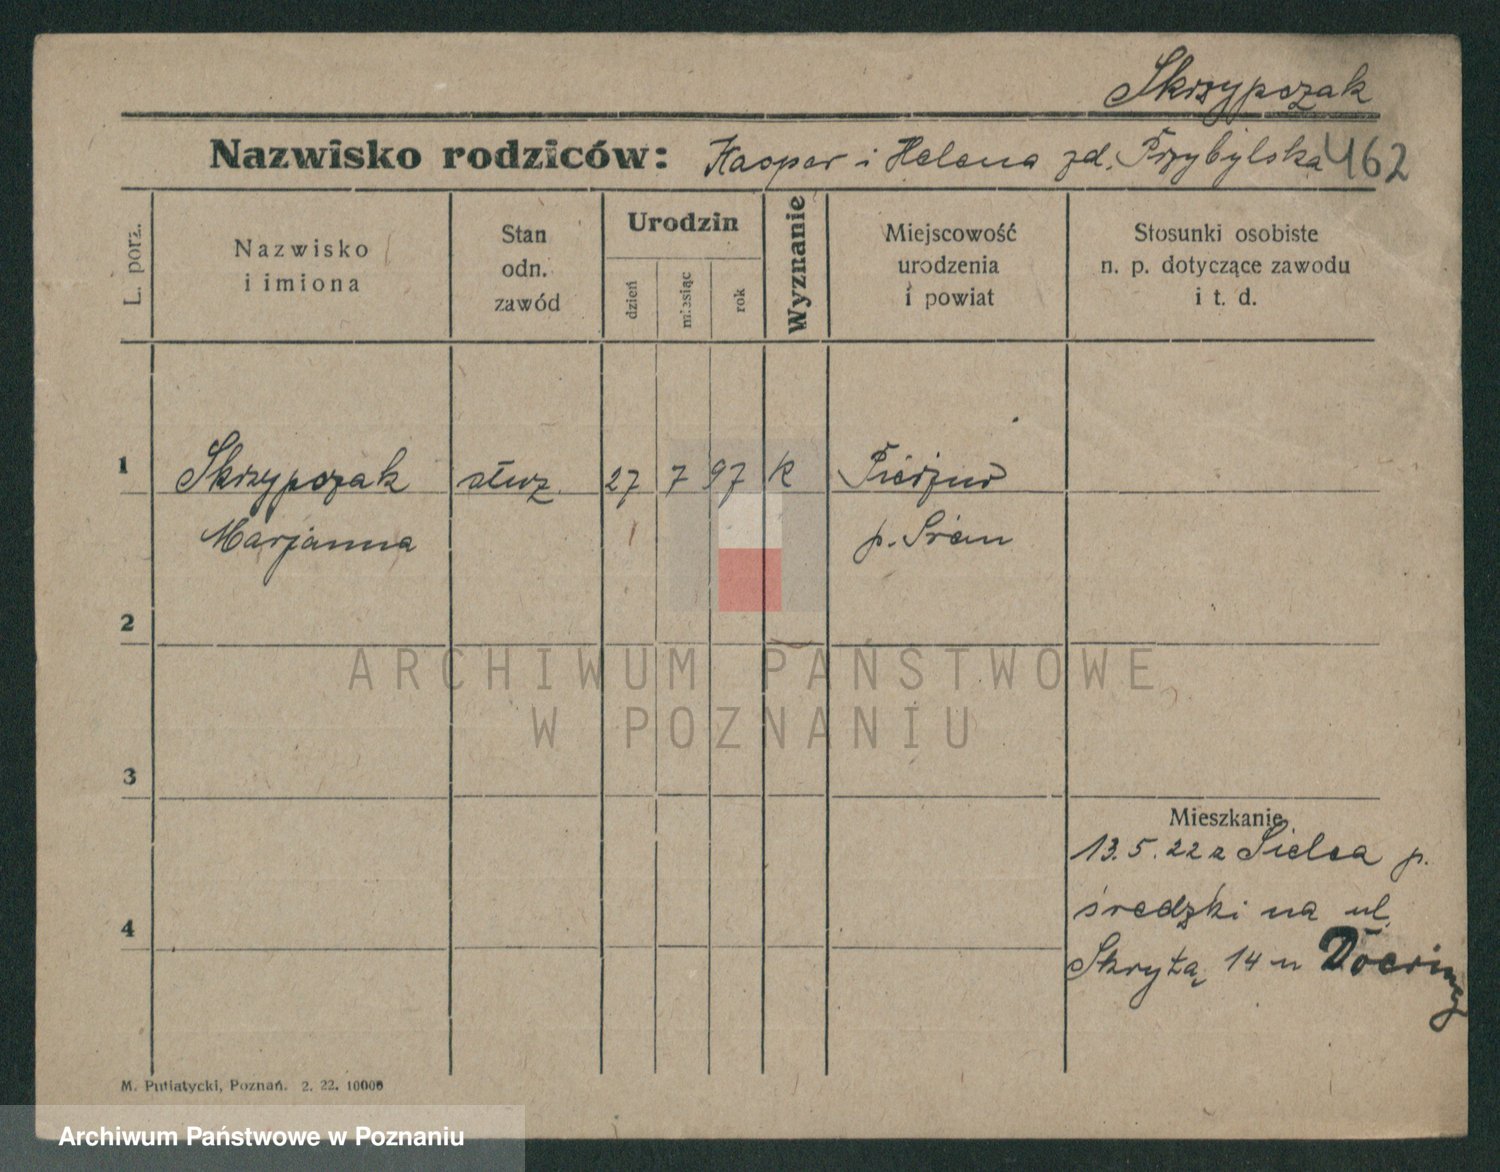 Skrzypczak
Nazwisko rodziców: Kasper i Helena zd. Przybylska 462
L. porz.
Nazwisko
i imiona
Stan
odn.
zawód
Urodzin
dzień
miesiąc
rok
Wyznanie
Miejscowość
urodzenia
i powiat
Stosunki osobiste
n. p. dotyczące zawodu
i t. d.
1
Skrzypczak służ. 27 7 97 k
Marjanna
p. Śrem
2
3
4
Mieszkanie
13.5.22 z Sielca p.
średzki na ul.
Skrytą 14 u
M. Putiatycki, Poznań. 2. 22. 10000
ARCHIWUM PAŃSTWOWE
W POZNANIU
Archiwum Państwowe w Poznaniu